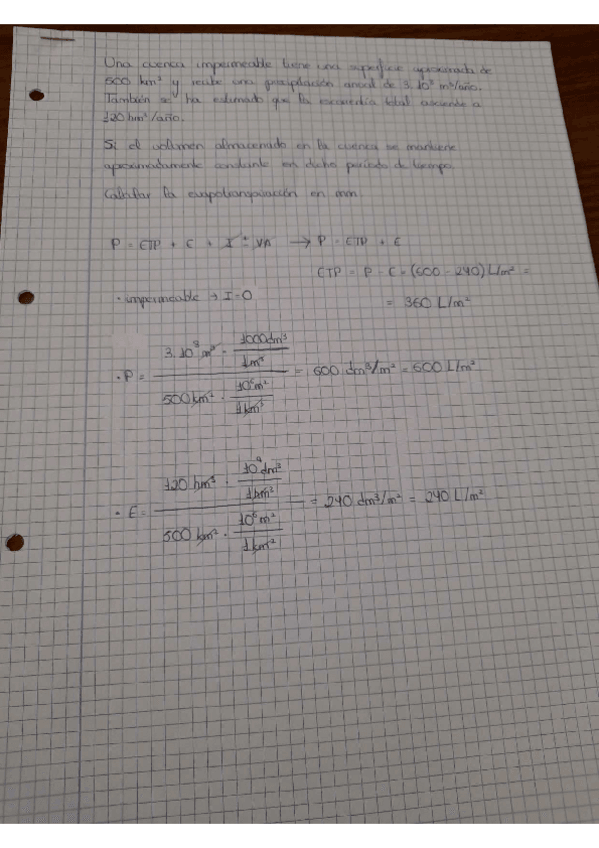 Una cuenca impermeable tiene una superficie aproximada de
500 km² y recibe una precipitación anual de 3·10⁸ m³/año.
También se ha estimado que la escorredía total asciende a
120 hm³/año.
Si el volumen almacenado en la cuenca se mantiene
aproximadamente constante en dicho período de tiempo.
Calcular la evapotranspiración en mm
P = ETP + E + I ± VA → P = ETP + E
ETP = P - E = (600 - 240) L/m² =
· impermeable → I = 0
= 360 L/m²
· P = (3·10⁸ m³ · 1000dm³/1m³) / (500 km² · 10⁶m²/1km²) = 600 dm³/m² = 600 L/m²
· E = (120 hm³ · 10⁹dm³/1hm³) / (500 km² · 10⁶m²/1km²) = 240 dm³/m² = 240 L/m²